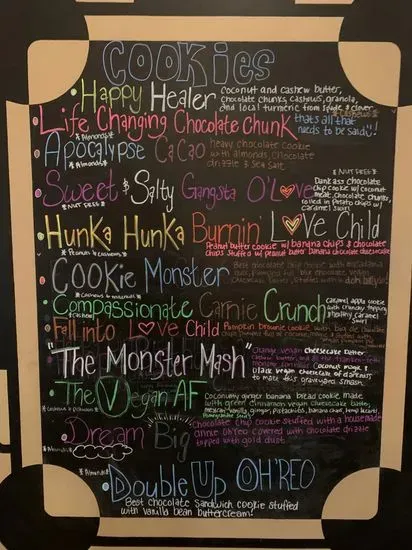 COOKies
Happy Healer
coconut and cashew butter,
chocolate chunks, cashews, granola,
and local turmeric from spade & clover
*Cashews*
Life Changing Chocolate Chunk
thats all that
needs to be said!
*Almonds*
Apocalypse CaCao
heavy chocolate cookie
with almonds, chocolate
drizzle & sea salt
*Almonds*
*NUT FREE*
Sweet & Salty Gangsta O'Love
Dank ass chocolate
chip cookie w/ coconut
meat, chocolate chunks,
rolled in potato chips w/
caramel swirl
*NUT FREE*
HUNKa HUNKa Burnin' Love Child
Peanut butter cookie w/ banana chips & chocolate
chips stuffed w/ peanut butter banana chocolate cheesecake
*Peanuts & cashews*
COOKie Monster
Best chocolate chip cookie with macadamia
*Cashews & macadamias*
Compassionate Carnie Crunch
Caramel apple cookie
with crunchy topping
caramel
swirl
*Pecans*
Fall into Love Child
Pumpkin brownie cookie with big ole chocolate
"The Monster Mash"
Orange vegan cheesecake batter,
cashew butter, and all the
coconut magic &
black vegan cheesecake
to make this graveyard smash
The Vegan AF
Coconutty ginger banana bread cookie made
with green cinnamon vegan cheesecake batter,
mexican vanilla, ginger, pistachios, banana chips, hemp hearts,
*Cashews & Pistachios*
Dream Big
Chocolate chip cookie stuffed with a housemade
covered with chocolate drizzle
topped with gold dust
*Almonds*
*Almonds*
Double Up OH'REO
Best chocolate sandwich cookie stuffed
with vanilla bean buttercream!